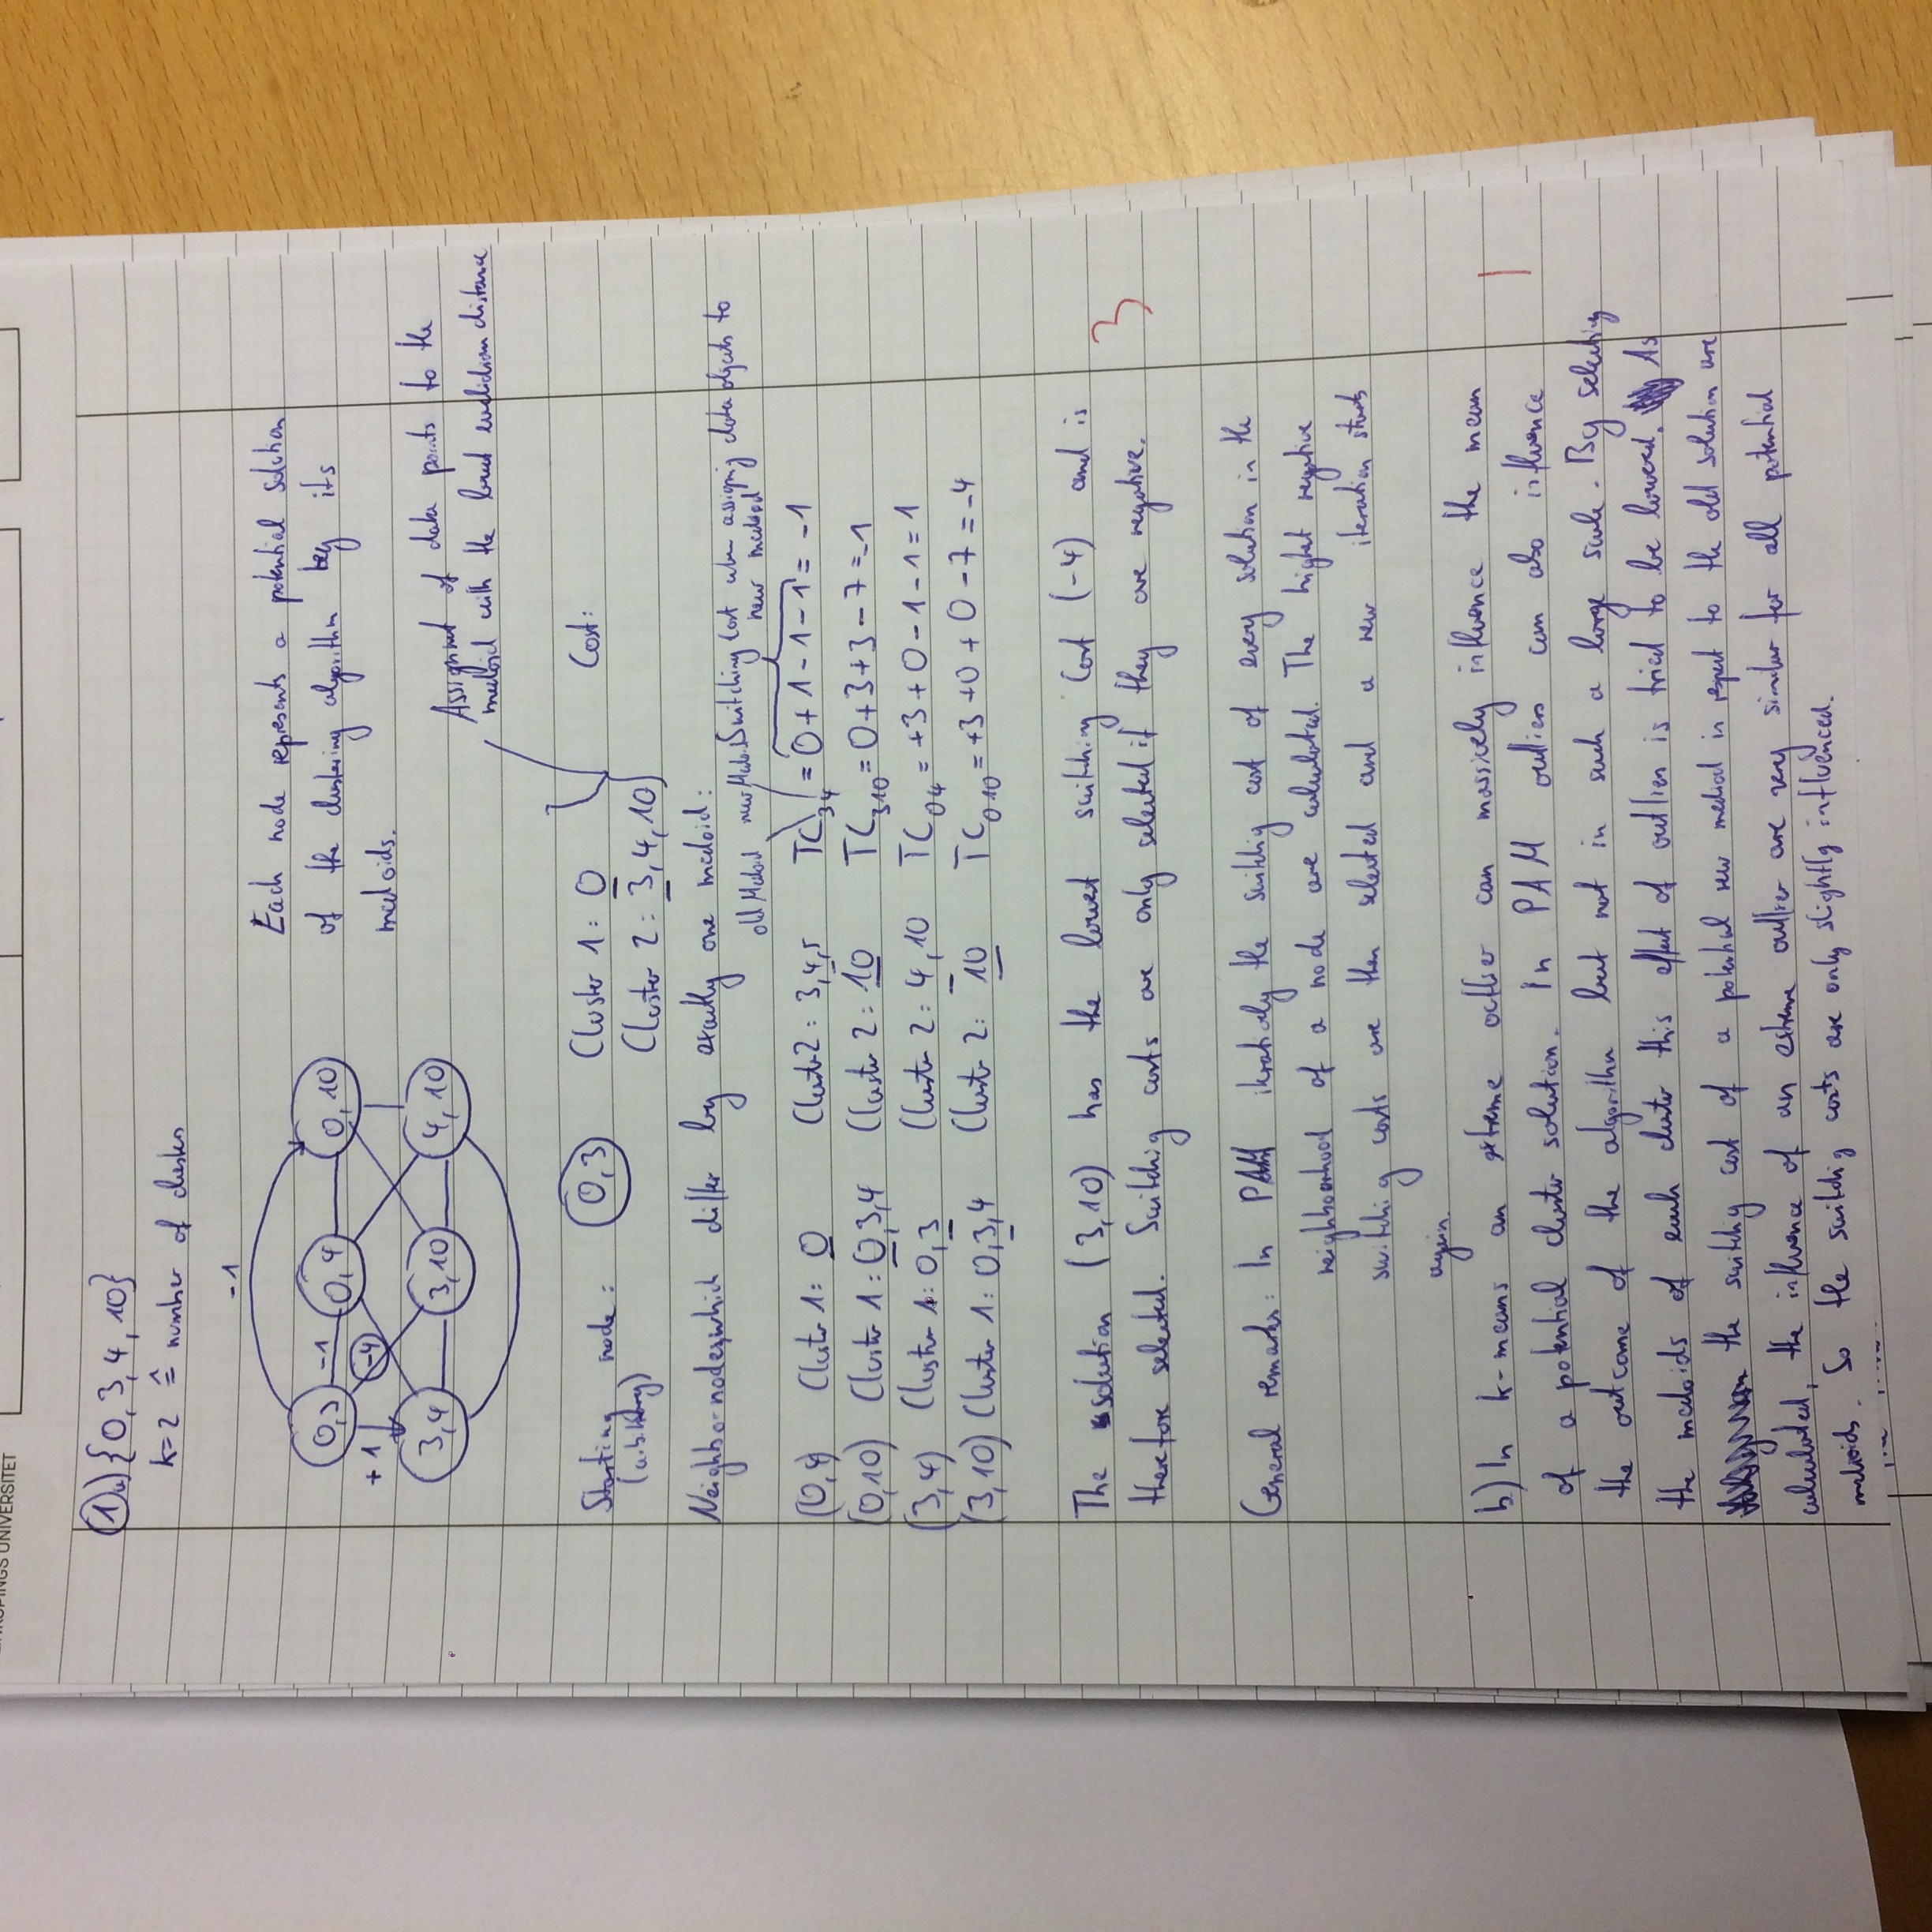 KÖPINGS UNIVERSITET
1 a) {0, 3, 4, 10}
k=2 ≙ number of clusters
-1
0,3 -1 0,4 0,10
+1 -4
3,4 3,10 4,10
Each node represents a potential solution
of the clustering algorithm by its
medoids.
Assignment of data points to the
medoid with the lowest euclidian distance
Starting node: 0,3 Cluster 1: 0 Cost:
(arbitrary) Cluster 2: 3,4,10
Neighbor nodes, which differ by exactly one medoid:
old Medoid new Medoid Switching Cost when assigning data objects to
new medoid
(0,4) Cluster 1: 0 Cluster 2: 3,4,5 TC34 = 0+1-1-1 = -1
(0,10) Cluster 1: 0,3,4 Cluster 2: 10 TC310 = 0+3+3-7 = -1
(3,4) Cluster 1: 0,3 Cluster 2: 4,10 TC04 = +3+0-1-1 = 1
(3,10) Cluster 1: 0,3,4 Cluster 2: 10 TC010 = +3+0+0-7 = -4
The solution (3,10) has the lowest switching cost (-4) and is
therefore selected. Switching costs are only selected if they are negative.
3
General remarks: In PAM iteratively the switching cost of every solution in the
neighboorhood of a node are calculated. The highest negative
switching costs are then selected and a new iteration starts
again.
b) In k-means an extreme outlier can massively influence the mean
1
of a potential cluster solution. In PAM outliers can also influence
the outcome of the algorithm but not in such a large scale. By selecting
the medoids of each cluster this effect of outliers is tried to be lowered. As
the switching cost of a potential new mediod in respect to the old solution are
calculated, the influence of an extreme outlier are very similar for all potential
medioids. So the switching costs are only slightly influenced.